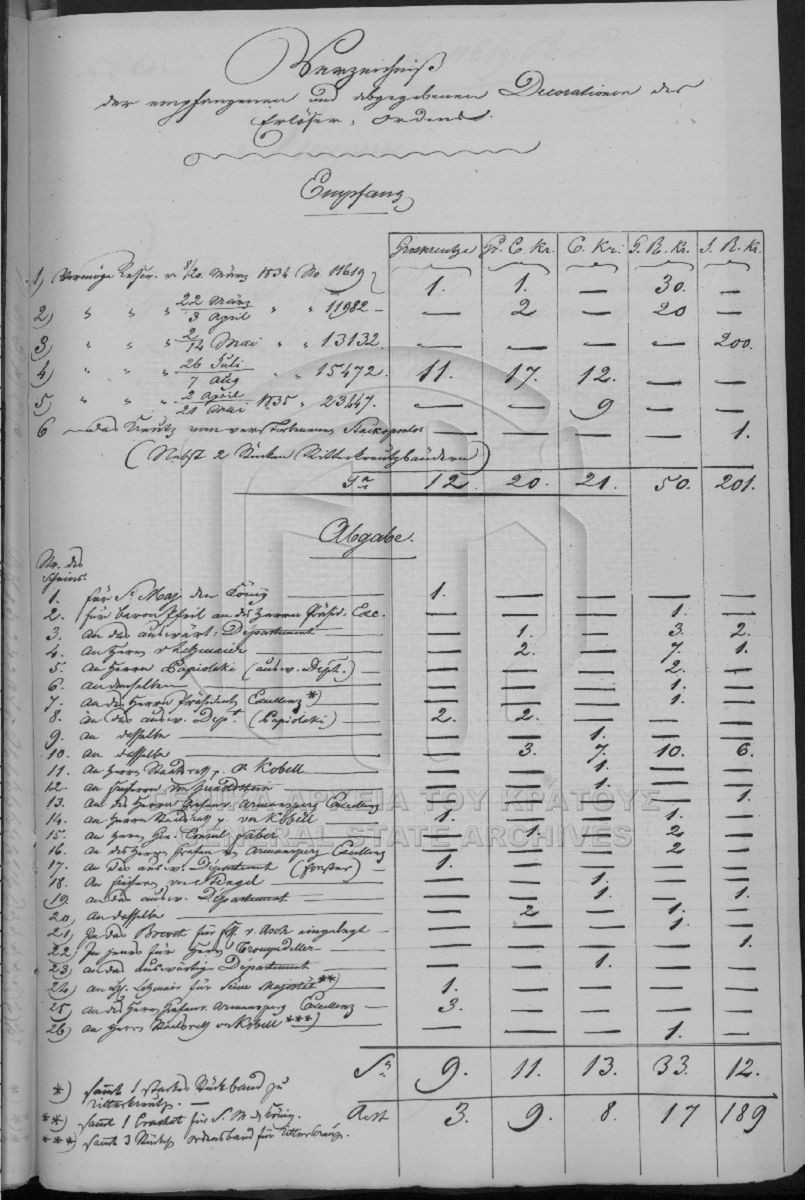 Verzeichniß
der empfangenen und abgegebenen Decorationen des
Erlöser-Ordens.
Empfang
Grosskreutze Gr. C. Kr. C. Kr. G. R. Kr. S. R. Kr.
1) Vermöge Rescr. v. 8/20. März 1834 No. 11619 1. 1. — 30. —
2) " " " 22 März / 3 April " " 11982 — — 2 — 20 —
3) " " " 2/14 Mai " " 13132. — — — — 200.
4) " " " 26 Juli / 7 Aug " " 15472. 11. 17. 12. — —
5) " " " 2 April / 21 Mai 1835 " 23447. — — 9 — —
6 das Kreutz vom verstorbenen — — — — 1.
(Nebst 2 Stücken Ritterkreutzbändern)
Sa 12. 20. 21. 50. 201.
Abgabe.
Nr. des
Scheins.
1. für Se Maj. den König 1. — — — —
2. für Baron Pfeil an des Herrn Präsid. Exc. — — — 1. —
3. An das auswärt. Département — 1. — 3. 2.
4. An Herrn v — 2. — 7. 1.
5. An Herrn Papiolski (ausw. Dept.) — — — 2. —
6. An denselben — — — 1. —
7. An des Herrn Präsident Excellenz *) — — — 1. —
8. An das ausw. Dept. (Papiolski) 2. 2. — — —
9. An dasselbe — — 1. — —
10. An dasselbe — 3. 7. 10. 6.
11. An Herrn Staatsrath p. v. Kobell — — 1. — —
12. An Freiherrn von — — 1. — —
13. An des Herrn Grafen v. Armansperg Excellenz — — — — 1.
14. An Herrn Staatsrath p. von Kobell 1. — — 1. —
15. An Herrn Gen. Consul Faber — 1. — 2 —
16. An des Herrn Grafen v. Armansperg Excellenz — — — 2 —
17. An das ausw. Département 1. — — — —
18. An Freiherrn von — — 1. — —
19. An das ausw. Département — — 1. — 1.
20) An dasselbe — 2 — 1. —
21) In das Brevet für H. v. Asch eingelegt — — — 1. —
22) In jenes für Herrn — — — — 1.
23) An das auswärtige Département — — 1. — —
24) An H. Lehmaier für Seine Majestät **) 1. — — — —
25) An des Herrn Grafen v. Armansperg Excellenz 3. — — — —
26) An Herrn Staatsrath von Kobell ***) — — — 1. —
Sa 9. 11. 13. 33. 12.
Rest 3. 9. 8. 17 189
*) sammt 1 Stück Band zu
Ritterkreutz. —
**) sammt 1 Crachat für S. M. d. König.
***) sammt 3 Stück Ordensband für Ritterkreuz.
ΓΕΝΙΚΑ ΑΡΧΕΙΑ ΤΟΥ ΚΡΑΤΟΥΣ
GENERAL STATE ARCHIVES